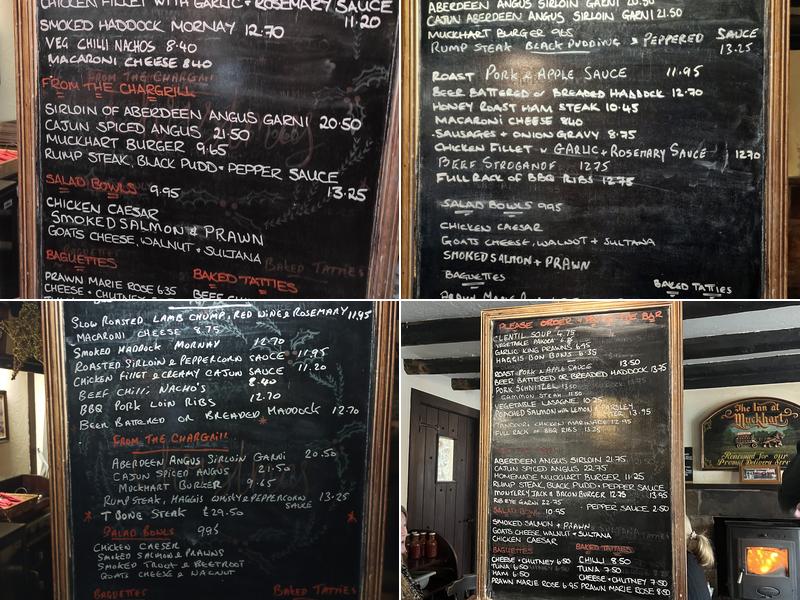 CHICKEN FILLET WITH GARLIC + ROSEMARY SAUCE 11.20
SMOKED HADDOCK MORNAY 12.70
VEG CHILLI NACHOS 8.40
MACARONI CHEESE 8.40
FROM THE CHARGRILL
SIRLOIN OF ABERDEEN ANGUS GARNI 20.50
CAJUN SPICED ANGUS 21.50
MUCKHART BURGER 9.65
RUMP STEAK, BLACK PUDD + PEPPER SAUCE 13.25
SALAD BOWLS 9.95
CHICKEN CAESAR
SMOKED SALMON & PRAWN
GOATS CHEESE, WALNUT + SULTANA
BAGUETTES BAKED TATTIES
PRAWN MARIE ROSE 6.35
CHEESE + CHUTNEY
ABERDEEN ANGUS SIRLOIN GARNI 20.50
CAJUN ABERDEEN ANGUS SIRLOIN GARNI 21.50
MUCKHART BURGER 9.65
RUMP STEAK BLACK PUDDING & PEPPERED SAUCE 13.25
ROAST PORK & APPLE SAUCE 11.95
BEER BATTERED OR BREADED HADDOCK 12.70
HONEY ROAST HAM STEAK 10.45
MACARONI CHEESE 8.40
SAUSAGES + ONION GRAVY 8.75
CHICKEN FILLET W GARLIC + ROSEMARY SAUCE 12.70
BEEF STROGANOF 12.75
FULL RACK OF BBQ RIBS 12.75
SALAD BOWLS 9.95
CHICKEN CAESAR
GOATS CHEESE, WALNUT + SULTANA
SMOKED SALMON + PRAWN
BAGUETTES
BAKED TATTIES
SLOW ROASTED LAMB CHUMP, RED WINE & ROSEMARY 11.95
MACARONI CHEESE 8.75
SMOKED HADDOCK MORNAY 12.70
ROASTED SIRLOIN & PEPPERCORN SAUCE 11.95
CHICKEN FILLET & CREAMY CAJUN SAUCE 11.20
BEEF CHILLI NACHO'S 8.40
BBQ PORK LOIN RIBS 12.70
BEER BATTERED OR BREADED HADDOCK 12.70
FROM THE CHARGRILL
ABERDEEN ANGUS SIRLOIN GARNI 20.50
CAJUN SPICED ANGUS 21.50
MUCKHART BURGER 9.65
RUMP STEAK, HAGGIS WHISKY & PEPPERCORN SAUCE 13.25
T BONE STEAK £29.50
SALAD BOWLS 9.95
CHICKEN CAESER
SMOKED SALMON & PRAWNS
SMOKED TROUT & BEETROOT
GOATS CHEESE & WALNUT
BAGUETTES BAKED TATTIES
PLEASE ORDER AT THE BAR
LENTIL SOUP 4.75
VEGETABLE PAKORA
GARLIC KING PRAWNS 6.95
HAGGIS BON BONS 6.35
ROAST PORK & APPLE SAUCE 13.50
BEER BATTERED OR BREADED HADDOCK 13.75
PORK SCHNITZEL 13.50
GAMMON STEAK 11.50
VEGETABLE LASAGNE 10.25
POACHED SALMON WITH LEMON & PARSLEY 13.95
TANDOORI CHICKEN 12.95
FULL RACK OF BBQ RIBS 13.25
ABERDEEN ANGUS SIRLOIN 21.75
CAJUN SPICED ANGUS 22.75
HOMEMADE MUCKHART BURGER 11.25
RUMP STEAK, BLACK PUDD + PEPPER SAUCE 13.95
MONTEREY JACK & BACON BURGER 12.75
RIB EYE GARNI 22.75
PEPPER SAUCE 2.50
SALAD BOWL 10.95
SMOKED SALMON + PRAWN
GOATS CHEESE, WALNUT + SULTANA
CHICKEN CAESAR
BAGUETTES BAKED TATTIES
CHEESE + CHUTNEY 6.50 CHILLI 8.50
TUNA 6.50 TUNA 7.50
HAM 6.50 CHEESE + CHUTNEY 7.50
PRAWN MARIE ROSE 6.95 PRAWN MARIE ROSE 8.50
The Inn at
Muckhart
Renowned for our
Prompt Delivery Service